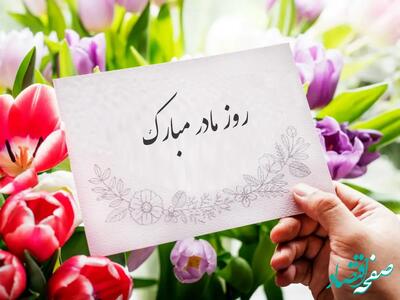 روز مادر مبارک
صفحه اقتصاد